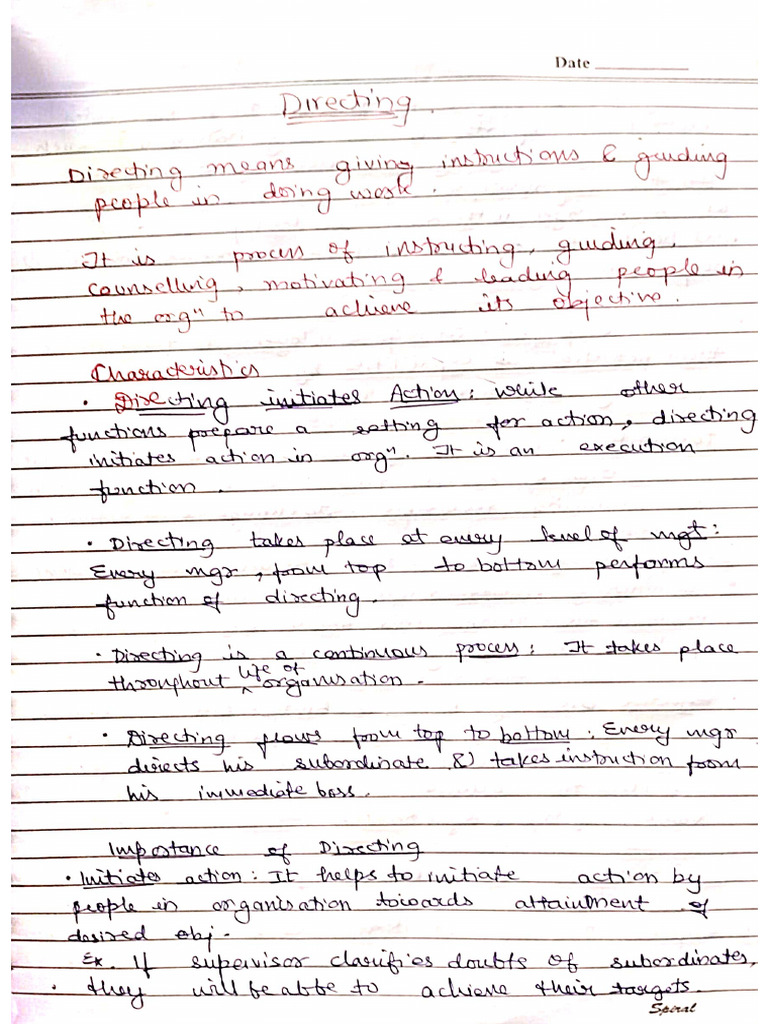 Date
Directing.
Directing means giving instructions & guiding
people in doing work.
It is process of instructing, guiding,
counselling, motivating & leading people in
the orgⁿ to achieve its objective.
Characteristics
• Directing initiates Action: while other
functions prepare a setting for action, directing
initiates action in orgⁿ. It is an execution
function.
• Directing takes place at every level of mgt:
Every mgr, from top to bottom performs
function of directing.
• Directing is a continuous process: It takes place
throughout life of organisation.
• Directing flows from top to bottom: Every mgr
directs his subordinate & takes instruction from
his immediate boss.
Importance of Directing
• Initiates action: It helps to initiate action by
people in organisation towards attainment of
desired obj.
Ex. If supervisor clarifies doubts of subordinates,
• they will be able to achieve their targets.
Spiral